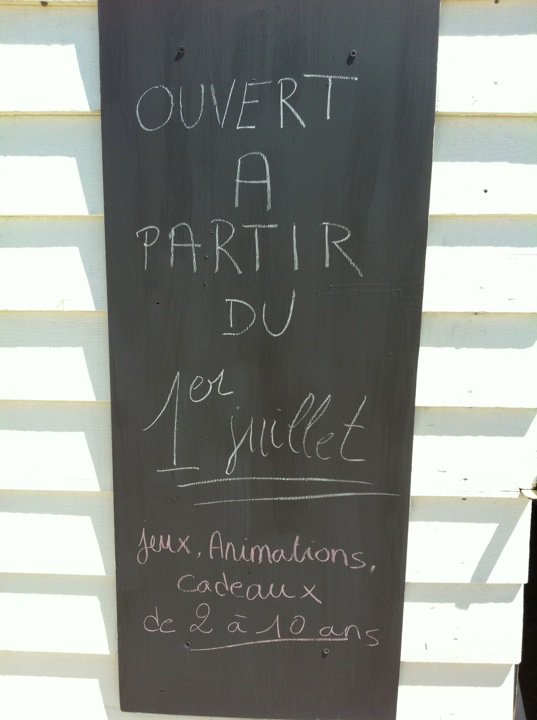 OUVERT
A
PARTIR
DU
1er juillet
Jeux, Animations,
Cadeaux
de 2 à 10 ans